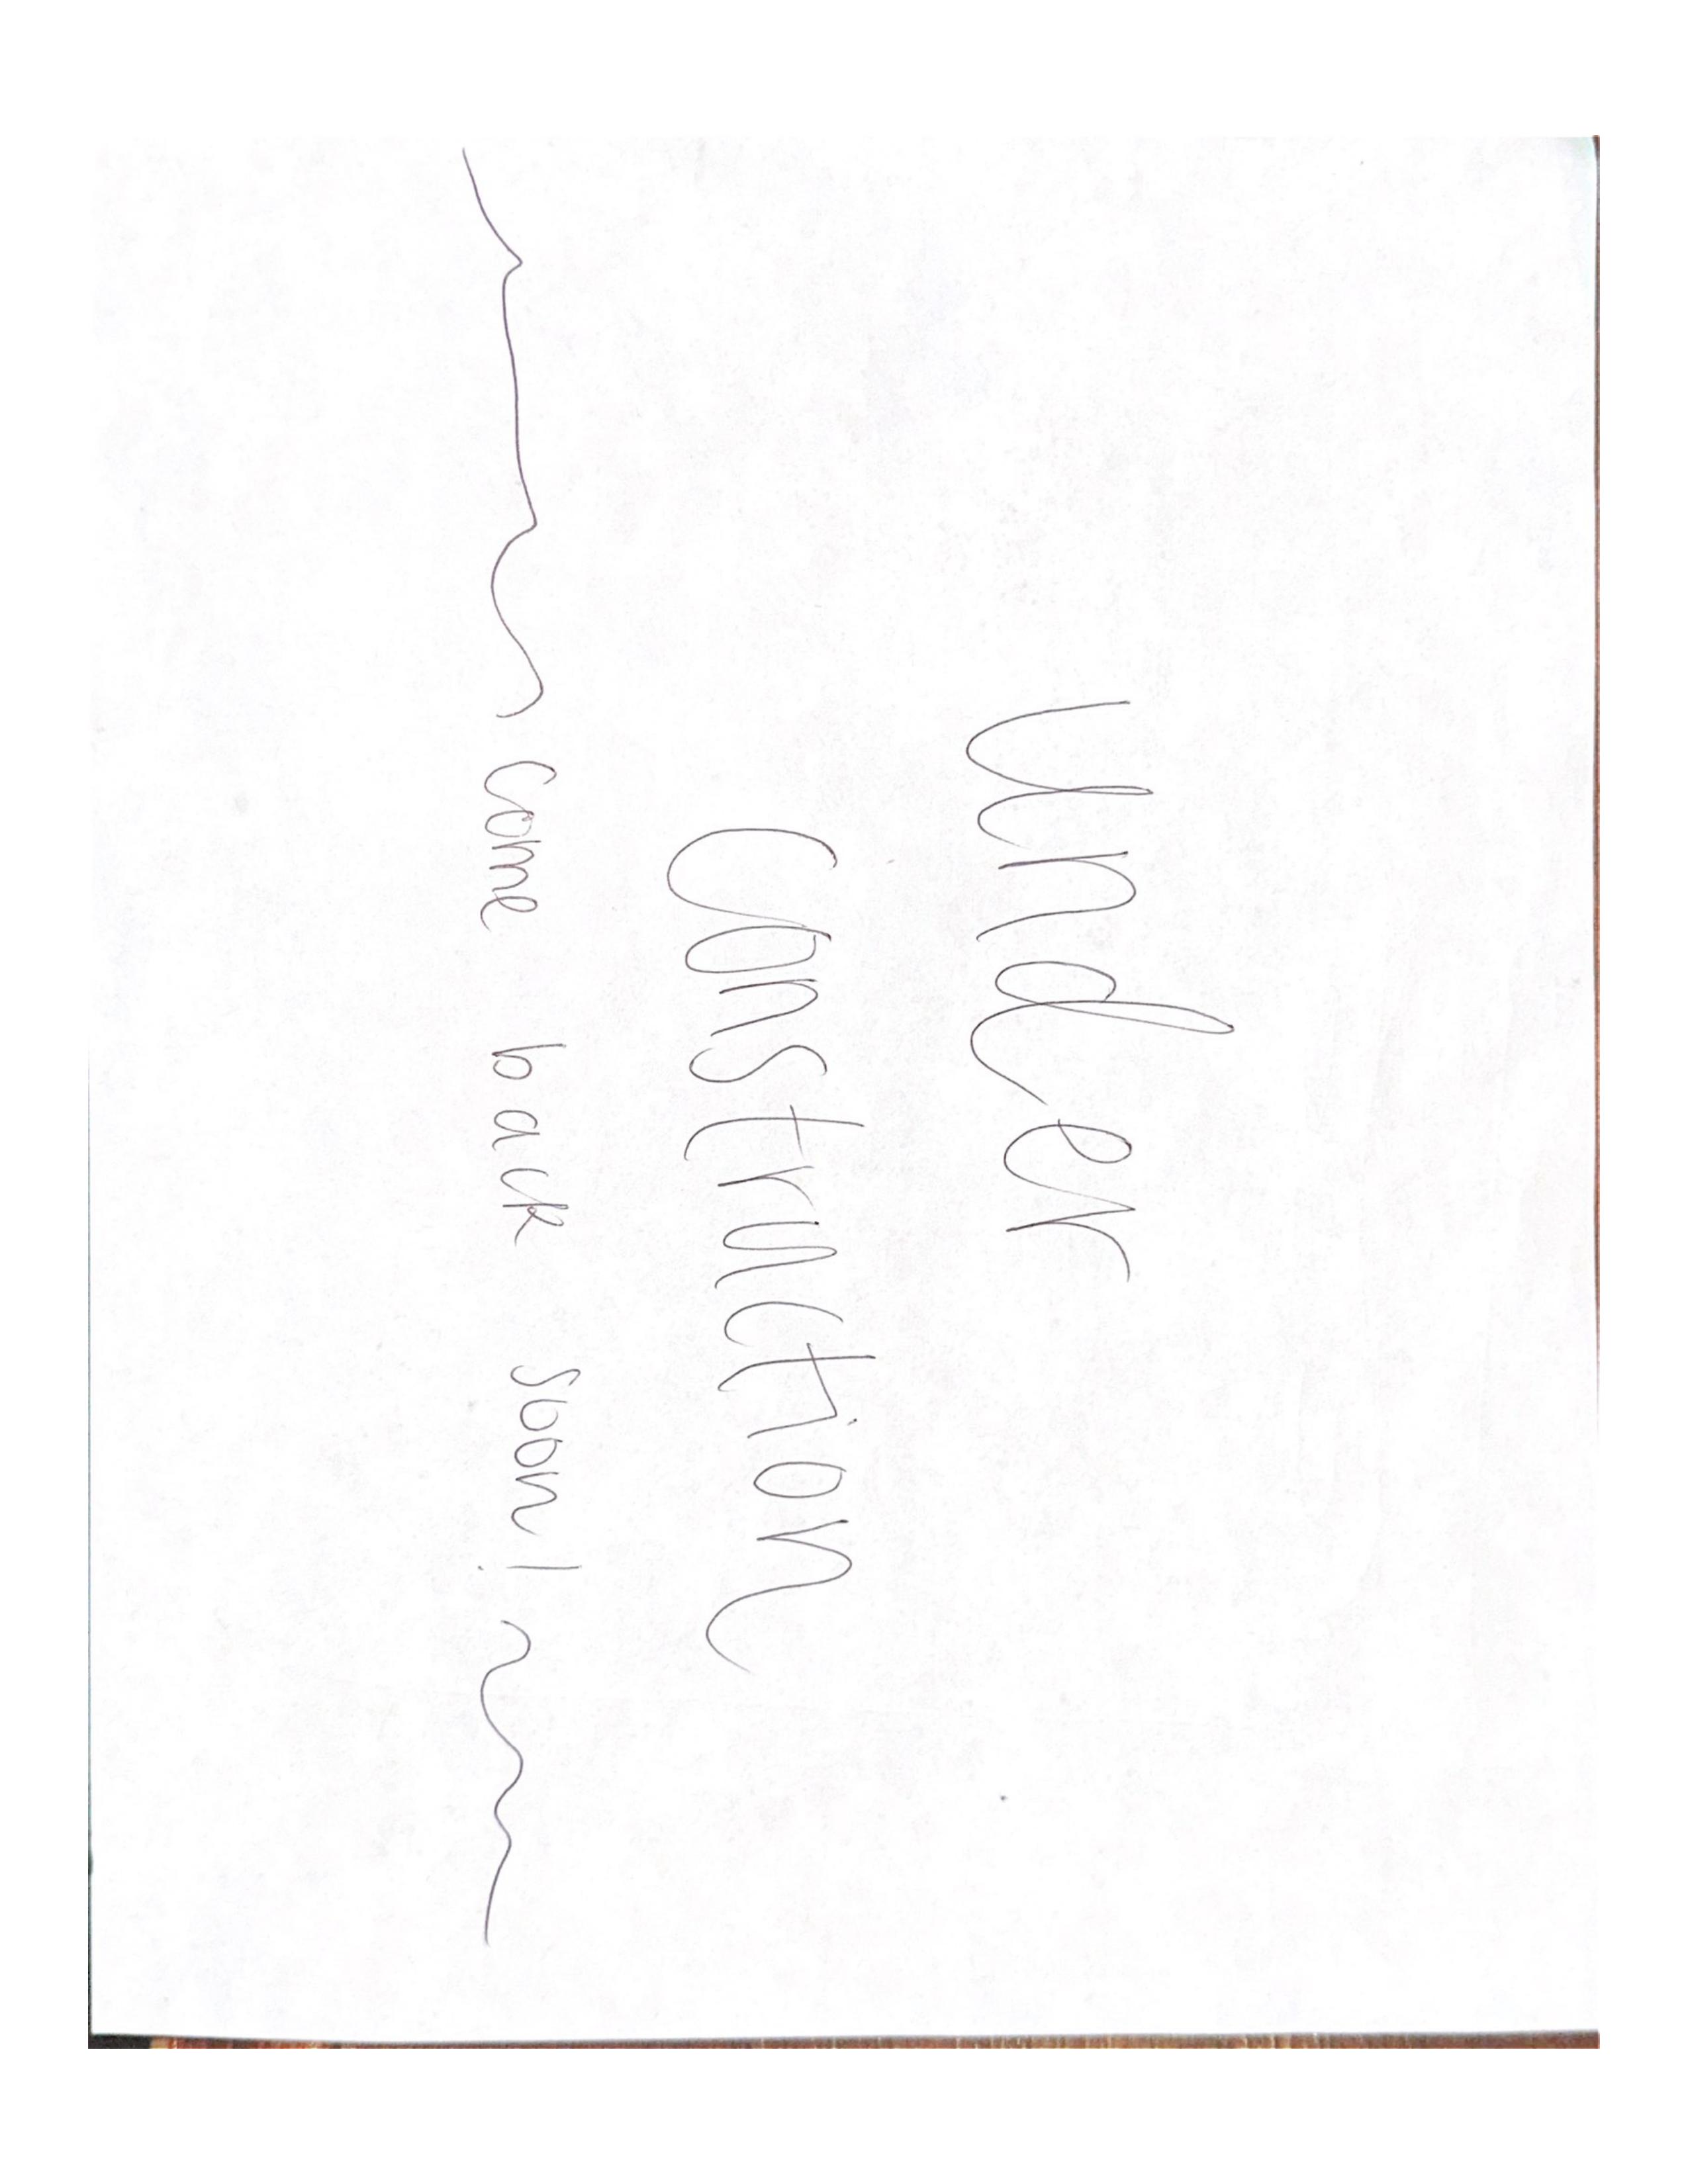 Under
Construction
come back soon!